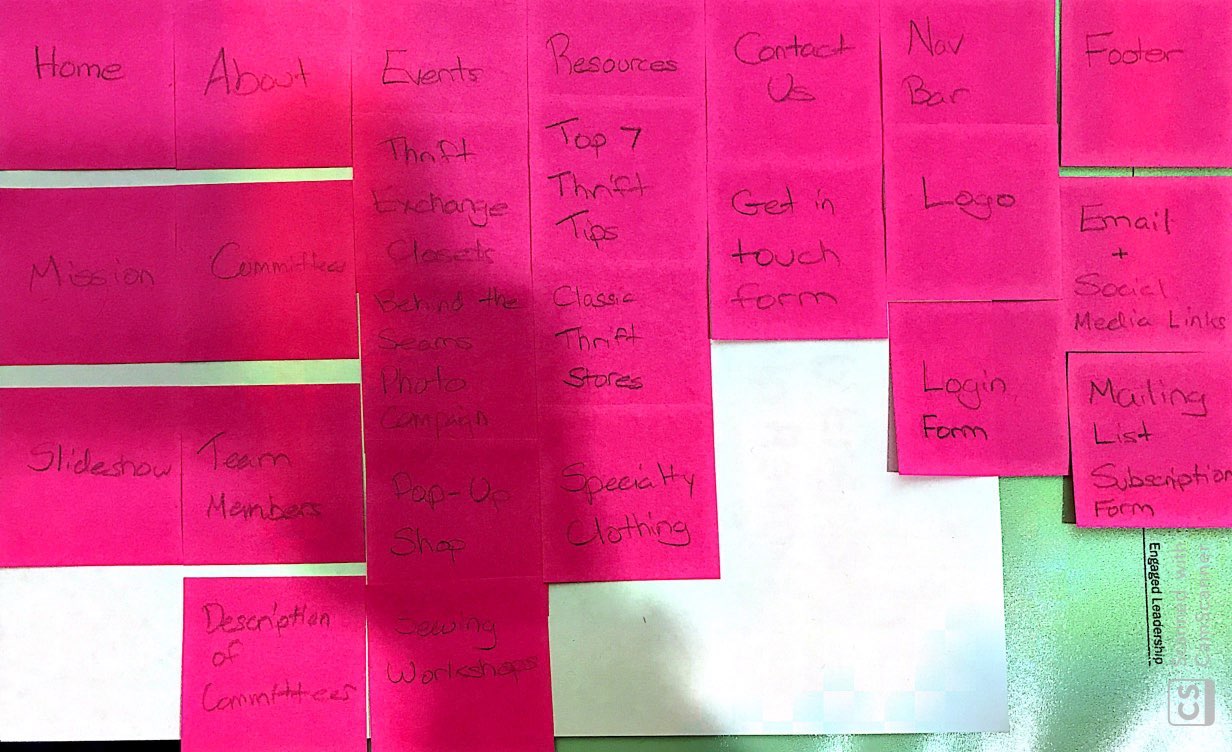 Home
Mission
Slideshow
About
Committees
Team
Members
Description
of
Committees
Events
Thrift
Exchange
Closets
Behind the
Seams
Photo
Campaign
Pop-Up
Shop
Sewing
Workshops
Resources
Top 7
Thrift
Tips
Classic
Thrift
Stores
Specialty
Clothing
Contact
Us
Get in
touch
form
Nav
Bar
Logo
Login
Form
Footer
Email
+
Social
Media Links
Mailing
List
Subscription
Form
Engaged Leadership
Scanned with
CamScanner
CS